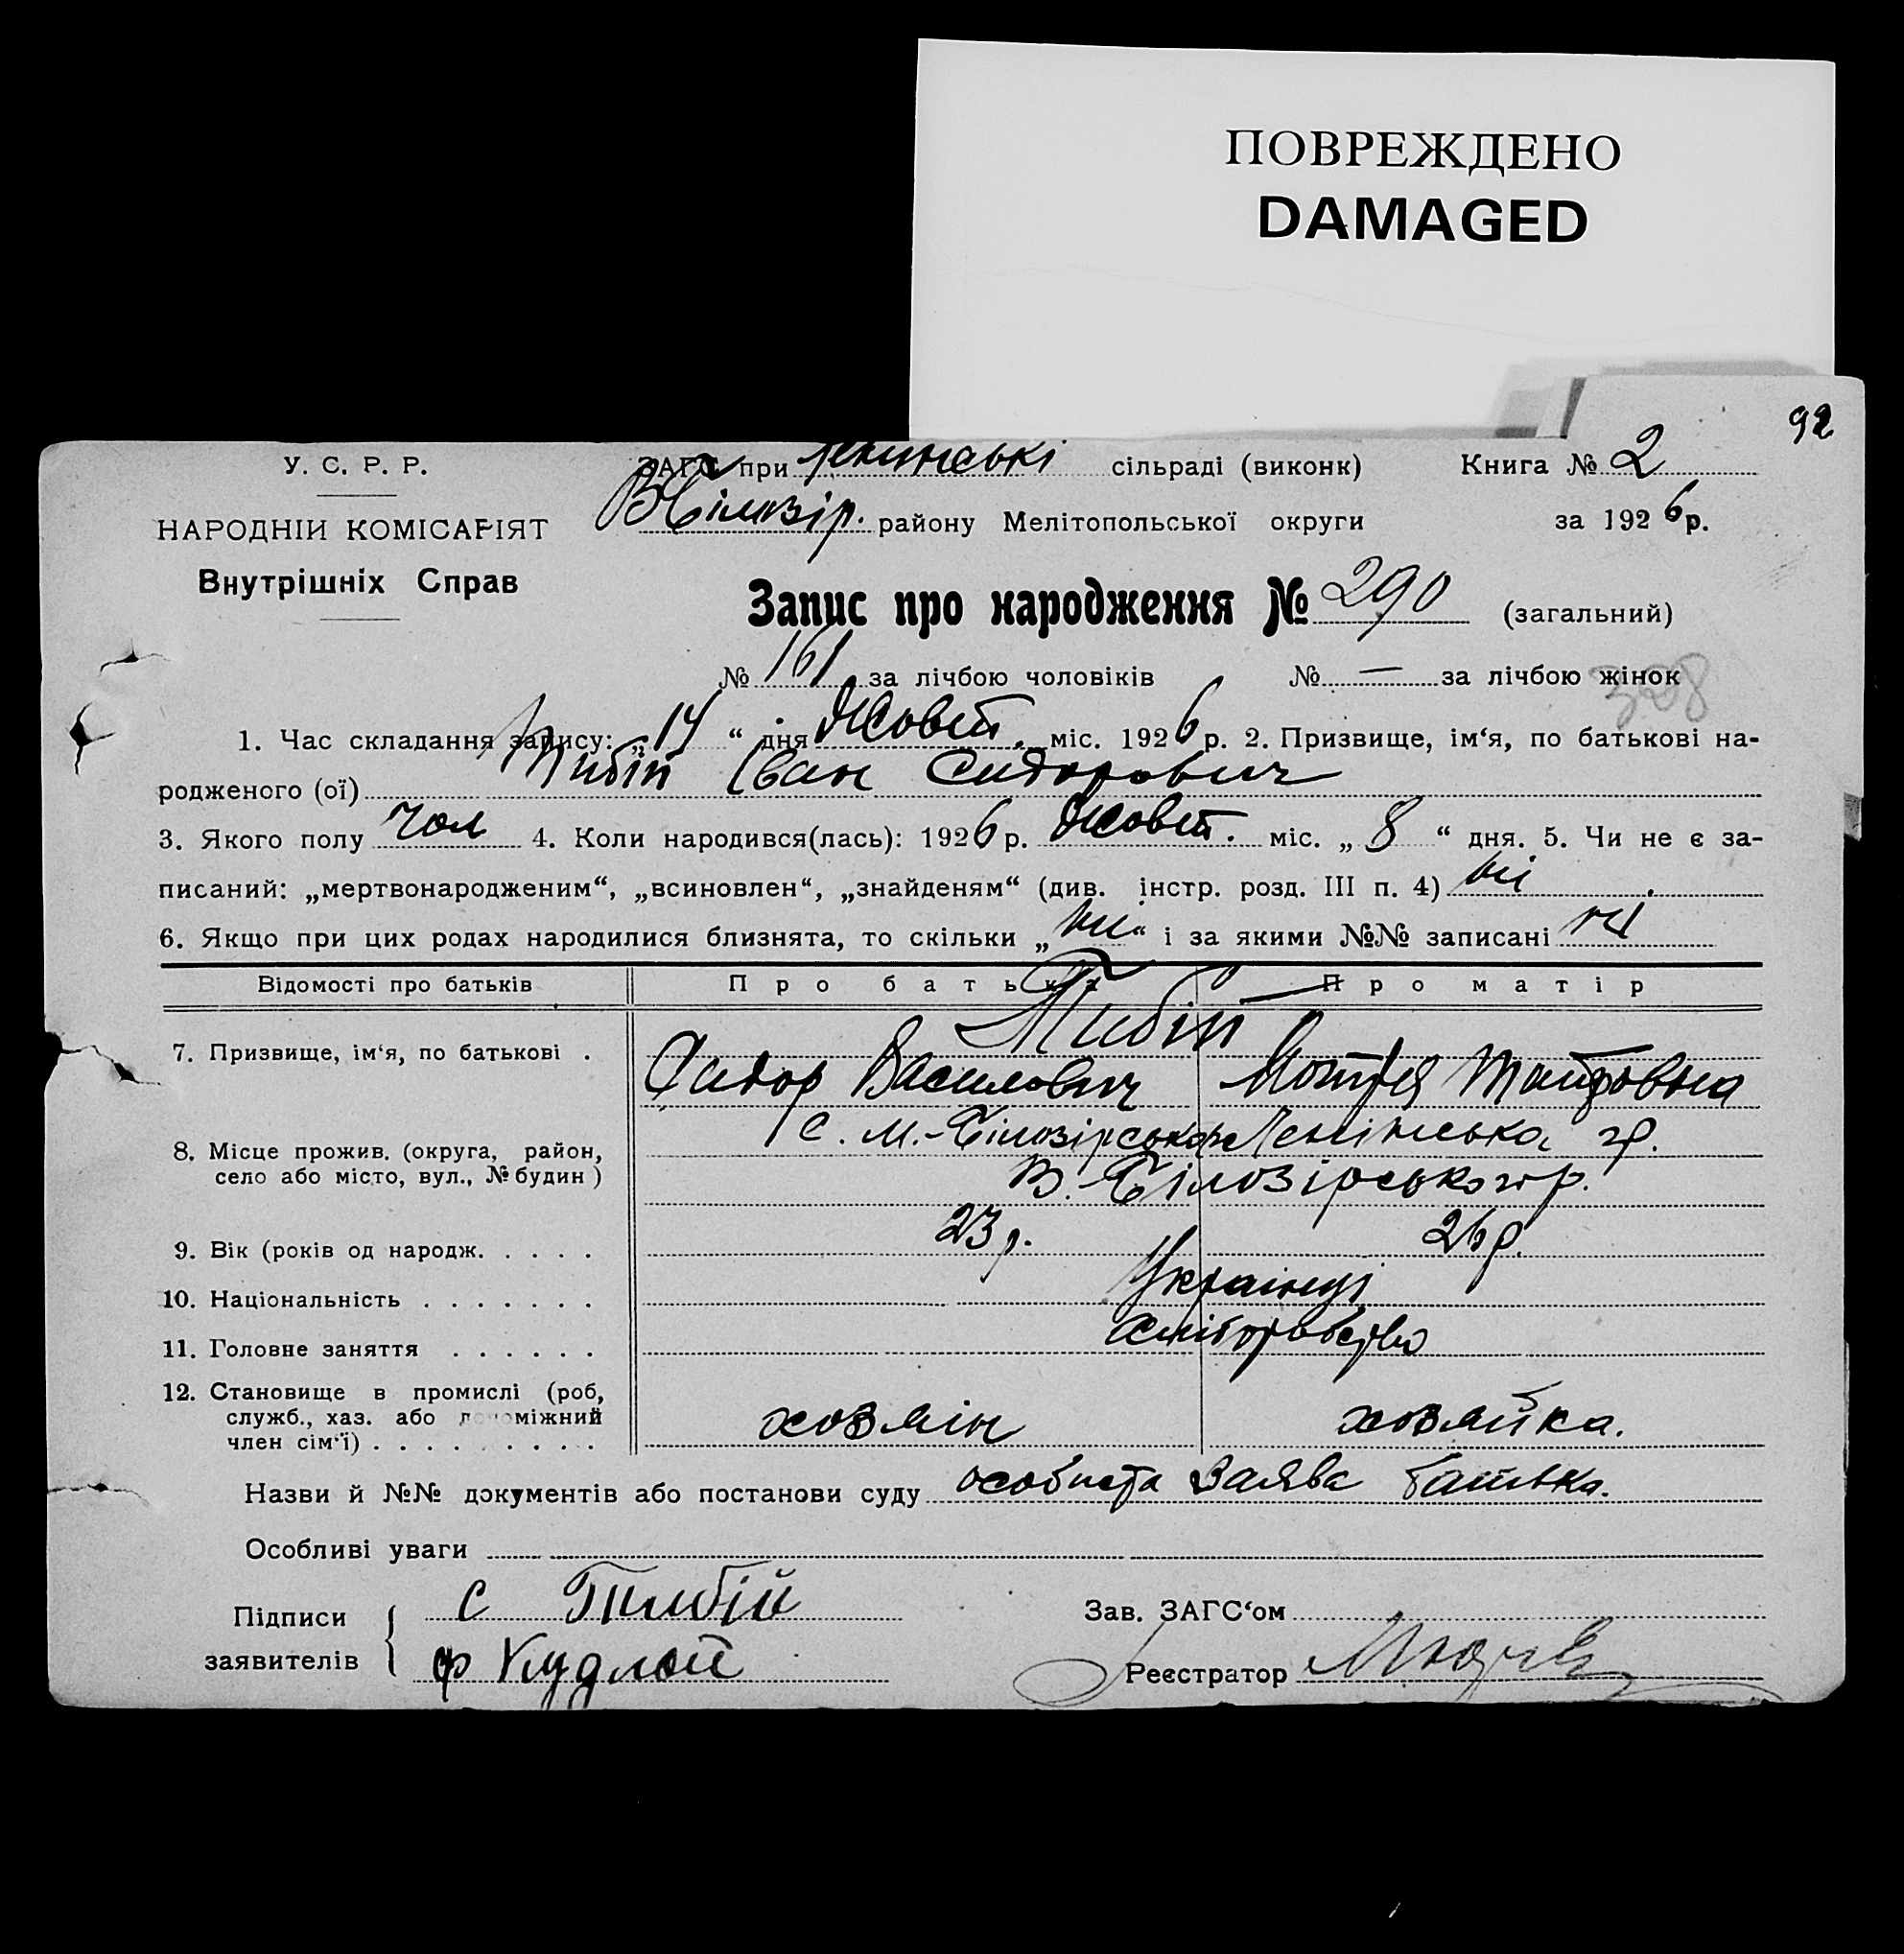 ПОВРЕЖДЕНО
DAMAGED
92
У. С. Р. Р.
ЗАГС при сільраді (виконк) Книга № 2
НАРОДНІЙ КОМІСАРІЯТ
В Білозір. району Мелітопольської округи за 1926 р.
Внутрішніх Справ
Запис про народження № 290 (загальний)
№ 161 за лічбою чоловіків № — за лічбою жінок
328
1. Час складання запису: „ 14 “ дня Жовт. міс. 1926 р. 2. Призвище, ім‘я, по батькові на-
родженого (ої) Іван Сидорович
3. Якого полу чол 4. Коли народився(лась): 1926 р. Жовт. міс. „ 8 “ дня. 5. Чи не є за-
писаний: „мертвонародженим“, „всиновлен“, „знайденям“ (див. інстр. розд. III п. 4) ні
6. Якщо при цих родах народилися близнята, то скільки „ ні “ і за якими №№ записані ні
Відомості про батьків Про батька Про матір
7. Призвище, ім‘я, по батькові .
Сидор Василович Мотря
8. Місце прожив. (округа, район,
село або місто, вул., № будин )
с. М.-Білозірська Ленінська
В.-Білозірського р.
9. Вік (років од народж. . . . . 23 р. 26 р.
10. Національність . . . . . . . Українці
11. Головне заняття . . . . . . хліборобство
12. Становище в промислі (роб,
служб., хаз. або допоміжний
член сім‘ї) . . . . . . . . . . хозяїн хозяйка.
Назви й №№ документів або постанови суду особиста заява батька.
Особливі уваги
Підписи
заявителів
С Тимбій
Ф Кудлай
Зав. ЗАГС‘ом
Реєстратор